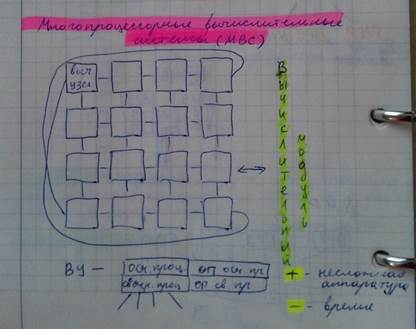 Многопроцессорные вычислительные
системы (МВС)
выч
узел
Вычислительный
модуль
ВУ —
осн. проц
оп осн пр
свозн. проц
оп св пр
+ - несложная
аппаратура
- - время